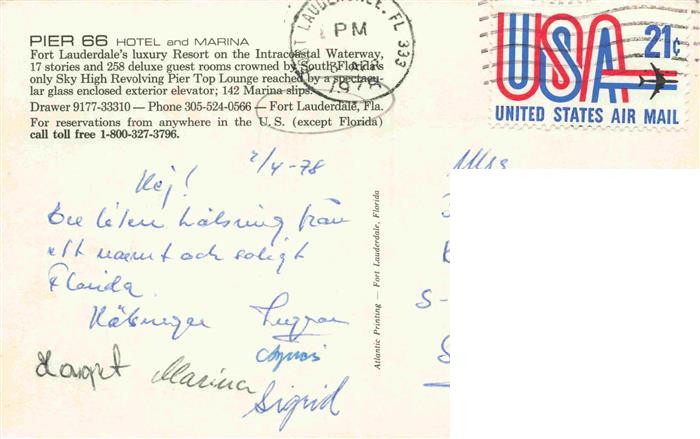 PIER 66 HOTEL and MARINA
Fort Lauderdale's luxury Resort on the Intracoastal Waterway,
17 stories and 258 deluxe guest rooms crowned by South Florida's
only Sky High Revolving Pier Top Lounge reached by a spectacu-
lar glass enclosed exterior elevator; 142 Marina slips.
Drawer 9177-33310 — Phone 305-524-0566 — Fort Lauderdale, Fla.
For reservations from anywhere in the U. S. (except Florida)
call toll free 1-800-327-3796.
FORT LAUDERDALE, FL 333
PM
APR
1978
USA 21¢
UNITED STATES AIR MAIL
2/4-78
Hej!
En liten hälsning från
ett varmt och soligt
Florida.
Hälsningar
Marina
Sigrid
Mrs
S-
Atlantic Printing — Fort Lauderdale, Florida